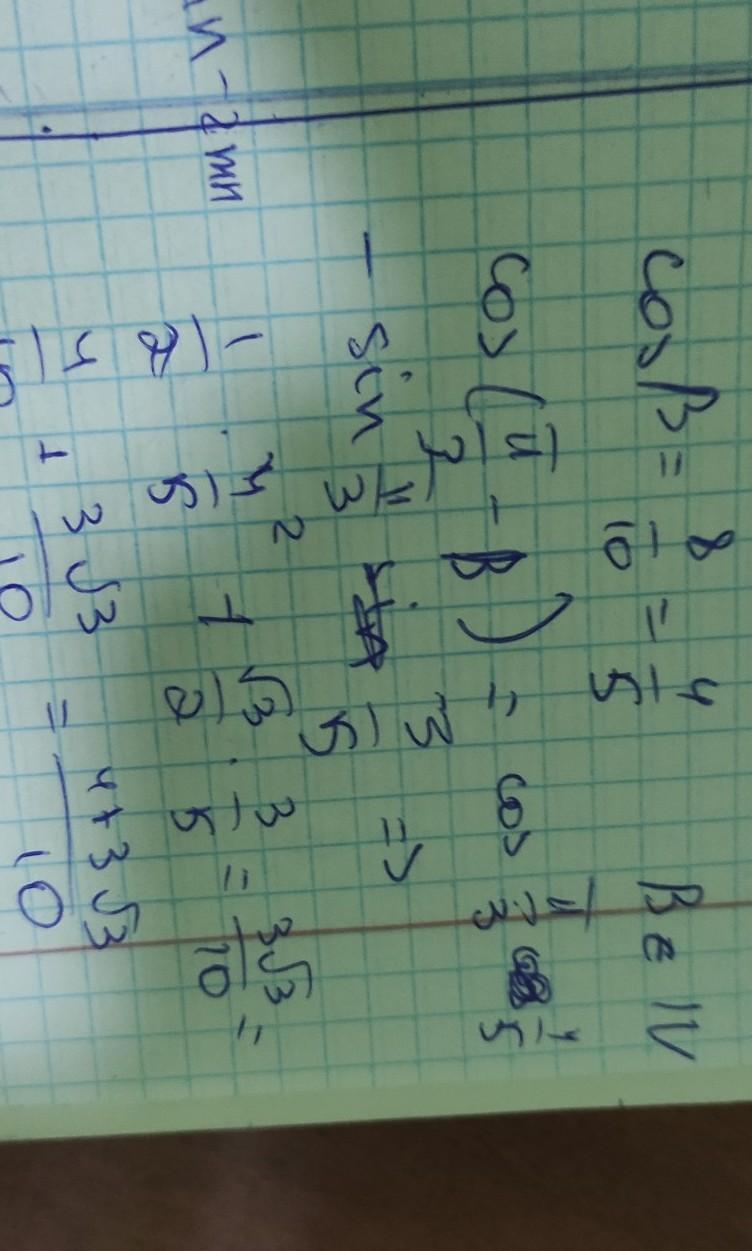 cos β = 8/10 = 4/5 β ∈ IV
cos (π/3 - β) = cos π/3 4/5
- sin π/3 3/5 =>
1/2 · 4/5 + √3/2 · 3/5 = 3√3/10 =
4/10 + 3√3/10 = (4+3√3)/10